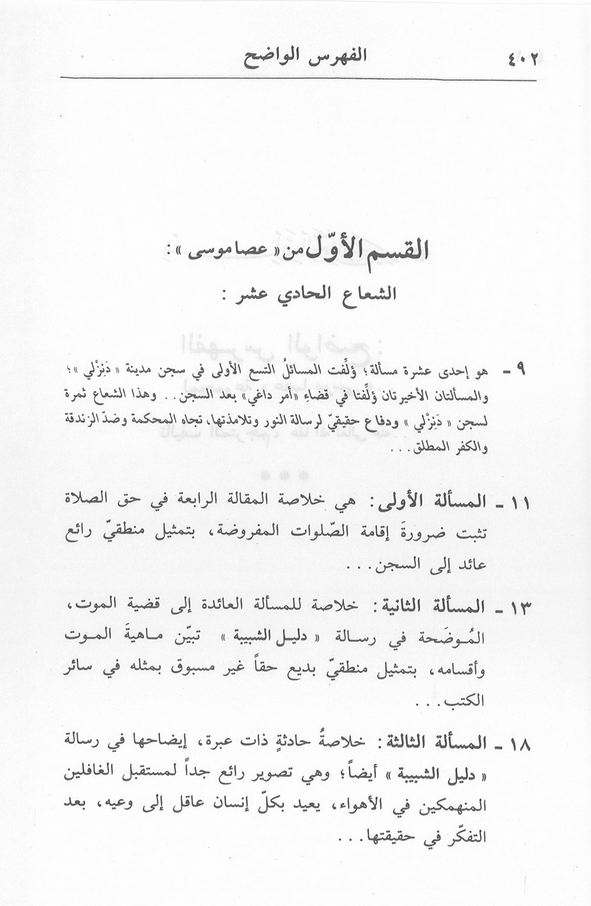 ٤٠٢ الفهرس الواضح
القسم الأوّل من « عصا موسى » :
الشعاع الحادي عشر :
٩ - هو إحدى عشرة مسألة؛ وُلِّفت المسائلُ التسع الأولى في سجن مدينة « دَنِزْلي »؛
والمسألتان الأخيرتان وُلِّفتا في قضاءِ «أمر داغي» بعد السجن.. وهذا الشعاع ثمرة
لسجن « دَنِزْلي » ودفاع حقيقيّ لرسالة النور وتلامذتها، تجاه المحكمة وضدّ الزندقة
والكفر المطلق...
١١ - المسألة الأولى: هي خلاصة المقالة الرابعة في حق الصلاة
تثبت ضرورةَ إقامة الصّلوات المفروضة، بتمثيل منطقيّ رائع
عائد إلى السجن...
١٣ - المسألة الثانية: خلاصة للمسألة العائدة إلى قضية الموت،
المُوضَحة في رسالة « دليل الشبيبة » تبيّن ماهيةَ الموت
وأقسامه، بتمثيل منطقيّ بديع حقاً غير مسبوق بمثله في سائر
الكتب...
١٨ - المسألة الثالثة: خلاصةُ حادثةٍ ذات عبرة، إيضاحها في رسالة
« دليل الشبيبة » أيضاً؛ وهي تصوير رائع جداً لمستقبل الغافلين
المنهمكين في الأهواء، يعيد بكلّ إنسان عاقل إلى وعيه، بعد
التفكّر في حقيقتها...